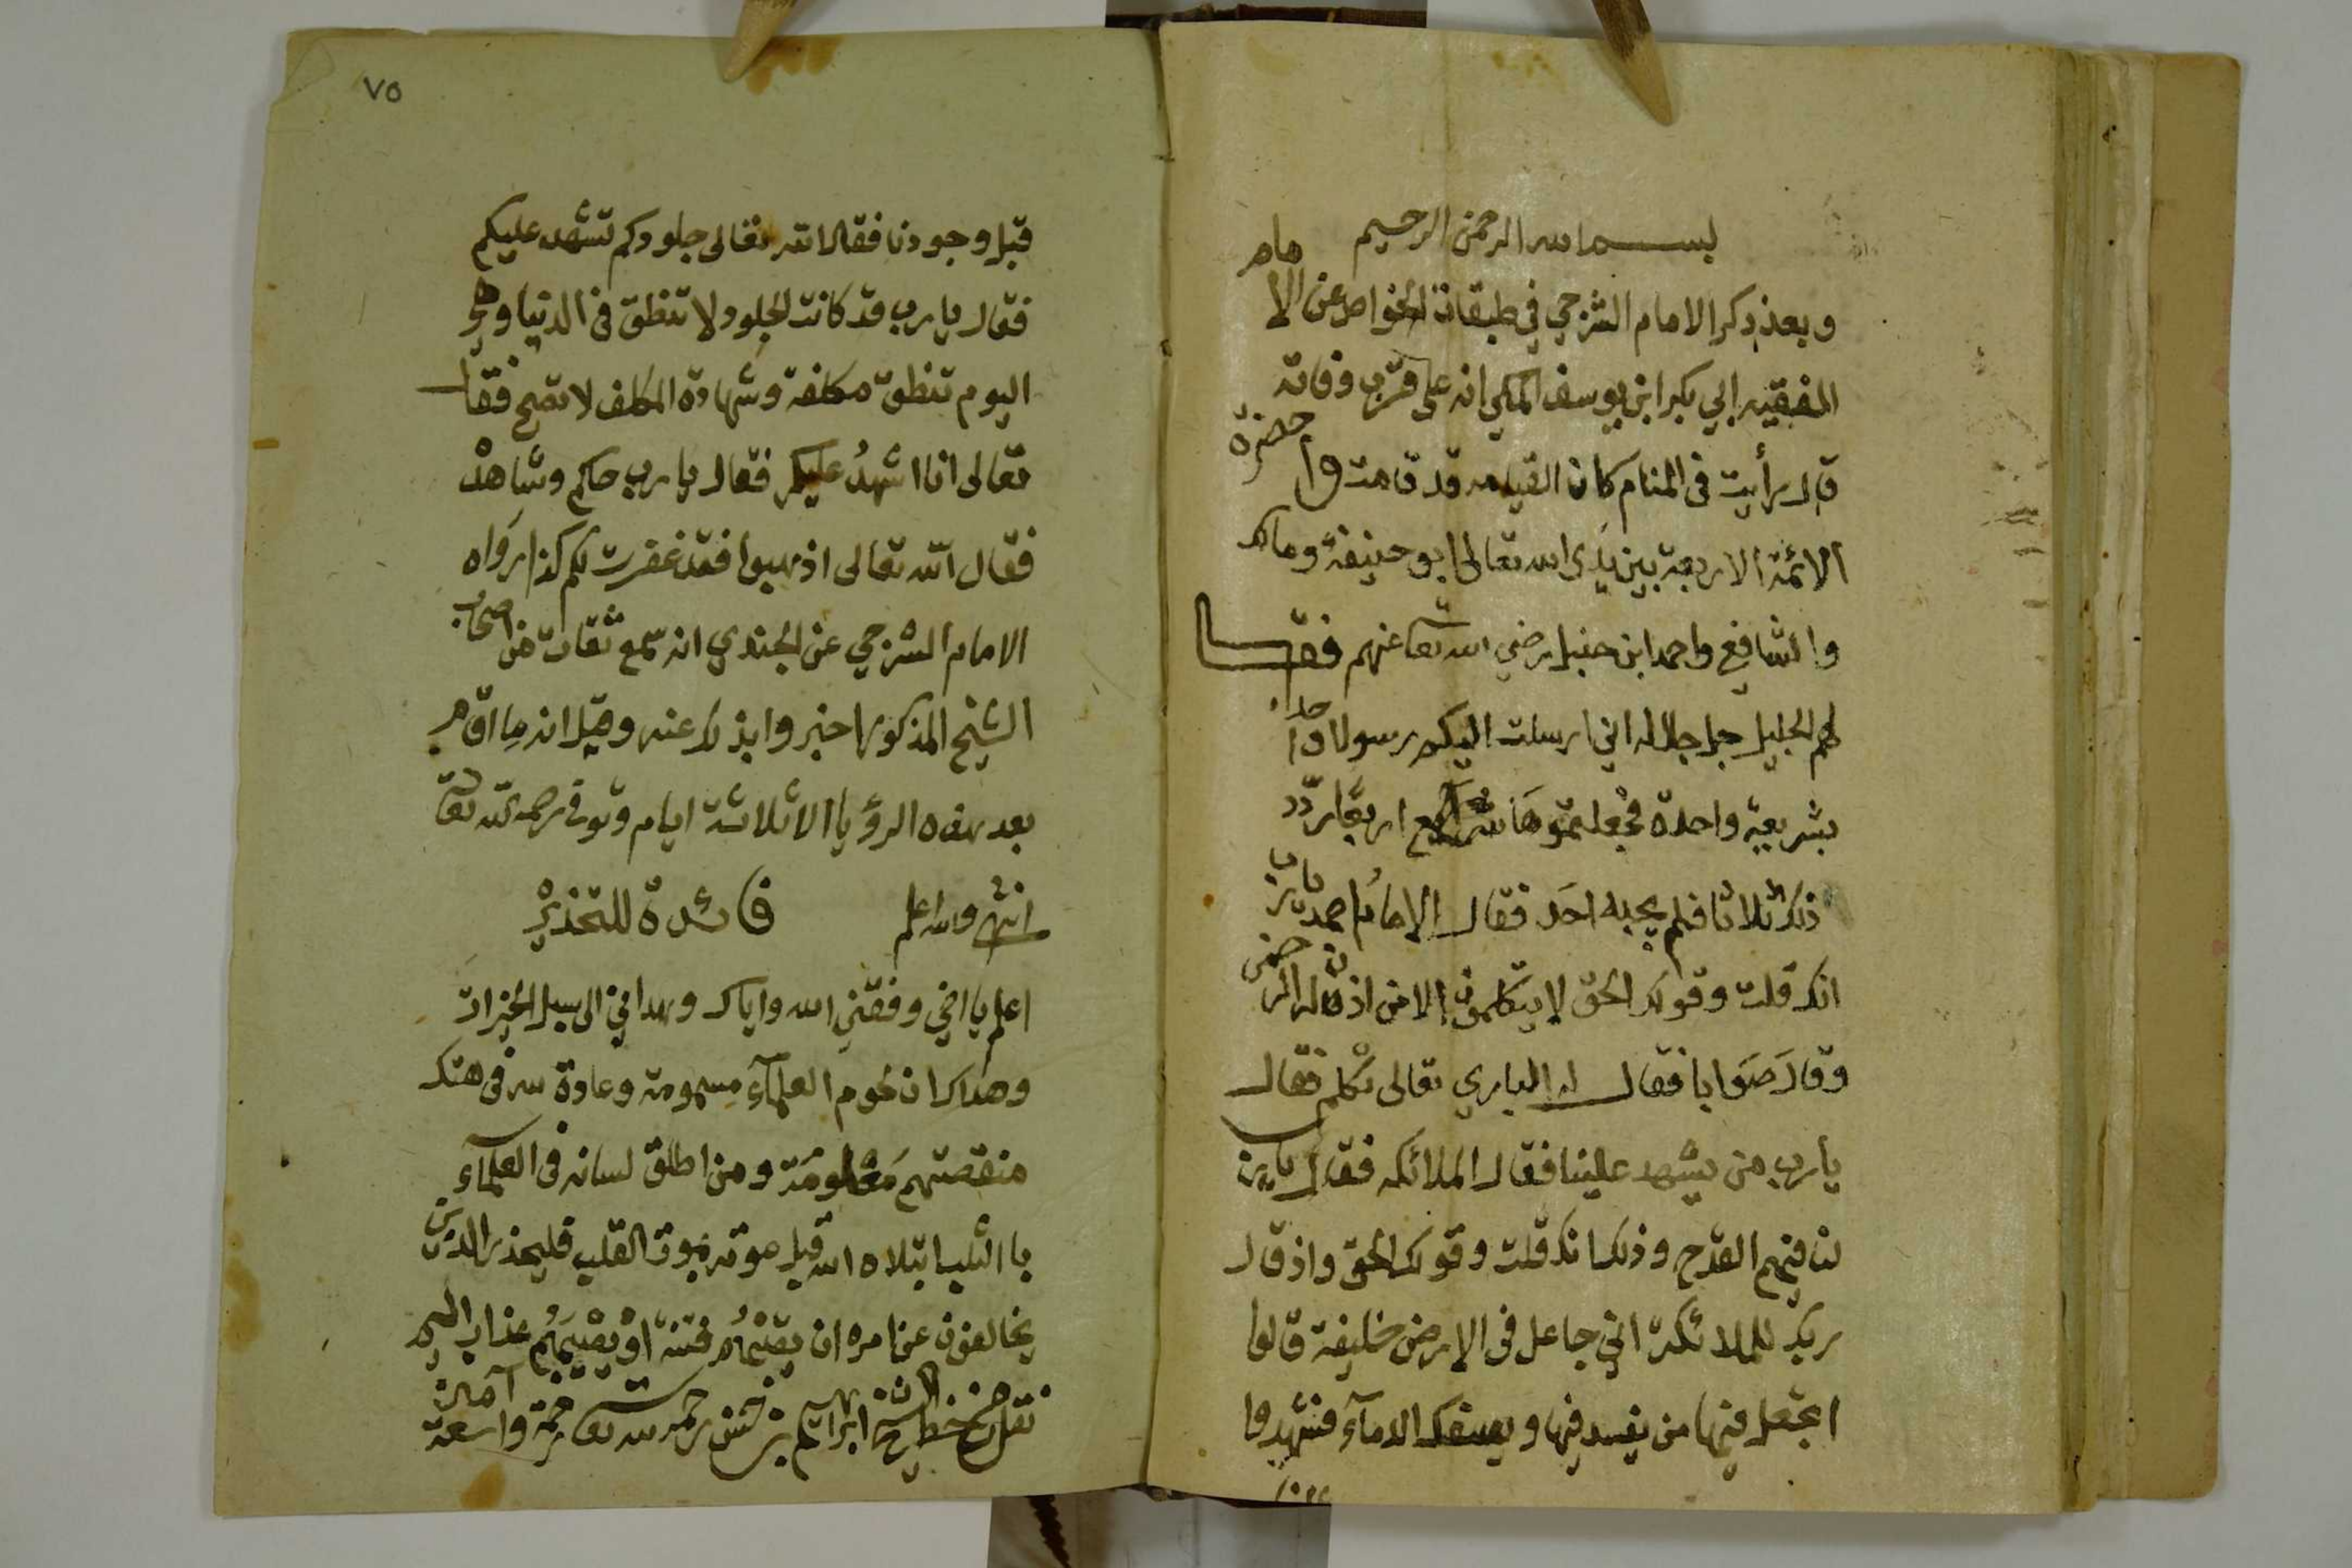 بسم الله الرحمن الرحيم
وبعد ذكر الامام الشرجي في طبقات الخواص عن الامام
الفقيه ابي بكر ابن يوسف المكي انه على قرب وفاته
قال رأيت في المنام كان القيامه قد قامت واحضرة
الائمة الاربعة بين يدى الله تعالى ابو حنيفة ومالك
والشافعي واحمد ابن حنبل رضي الله تعا عنهم فقال
لهم الجليل جل جلاله اني ارسلت اليكم رسولا واحدا
بشريعة واحدة فجعلتموها شرايع اربعا ردد
ذلك ثلاثا فلم يجبه احد فقال الامام احمد يارب
انك قلت وقولك الحق لا يتكلمون الا من اذن له الرحمن
وقال صوابا فقال له الباري تعالى تكلم فقال
يارب من يشهد علينا فقال الملائكه فقال يارب
لنا فيهم القدح وذلك انك قلت وقولك الحق واذ قال
ربك للملائكة اني جاعل فى الارض خليفة قالوا
اتجعل فيها من يفسد فيها ويسفك الدمآء فشهدوا
علينا
٧٥
قبل وجودنا فقال الله تعالى جلودكم تشهد عليكم
فقال يارب قد كانت الجلود لا تنطق فى الدنيا وهي
اليوم تنطق مكلفة وشهادة المكلف لا تصح فقال
تعالى انا اشهد عليكم فقال يارب حاكم وشاهد
فقال الله تعالى اذهبوا فقد غفرت لكم كذا رواه
الامام الشرجي عن الجندي انه سمع ثقات من اصحاب
الشيخ المذكور اخبروا بذلك عنه وقيل انه ما اقام
بعد هذه الرؤيا الا ثلاثة ايام وتوفى رحمه الله تعا
انتهى والله اعلم فائدة للتحذير
اعلم يا اخي وفقني الله واياك وهداني الى سبيل الخيرات
وهداك ان لحوم العلمآء مسمومة وعادة الله فى هتك
منقصتهم معلومة ومن اطلق لسانه فى العلمآء
بالثلب ابتلاه الله قبل موته بموت القلب فليحذر الذين
يخالفون عن امره ان تصيبهم فتنة او يصيبهم عذاب اليم
نقل من خط الشيخ ابراهيم رحمه الله تعا رحمة واسعة آمين